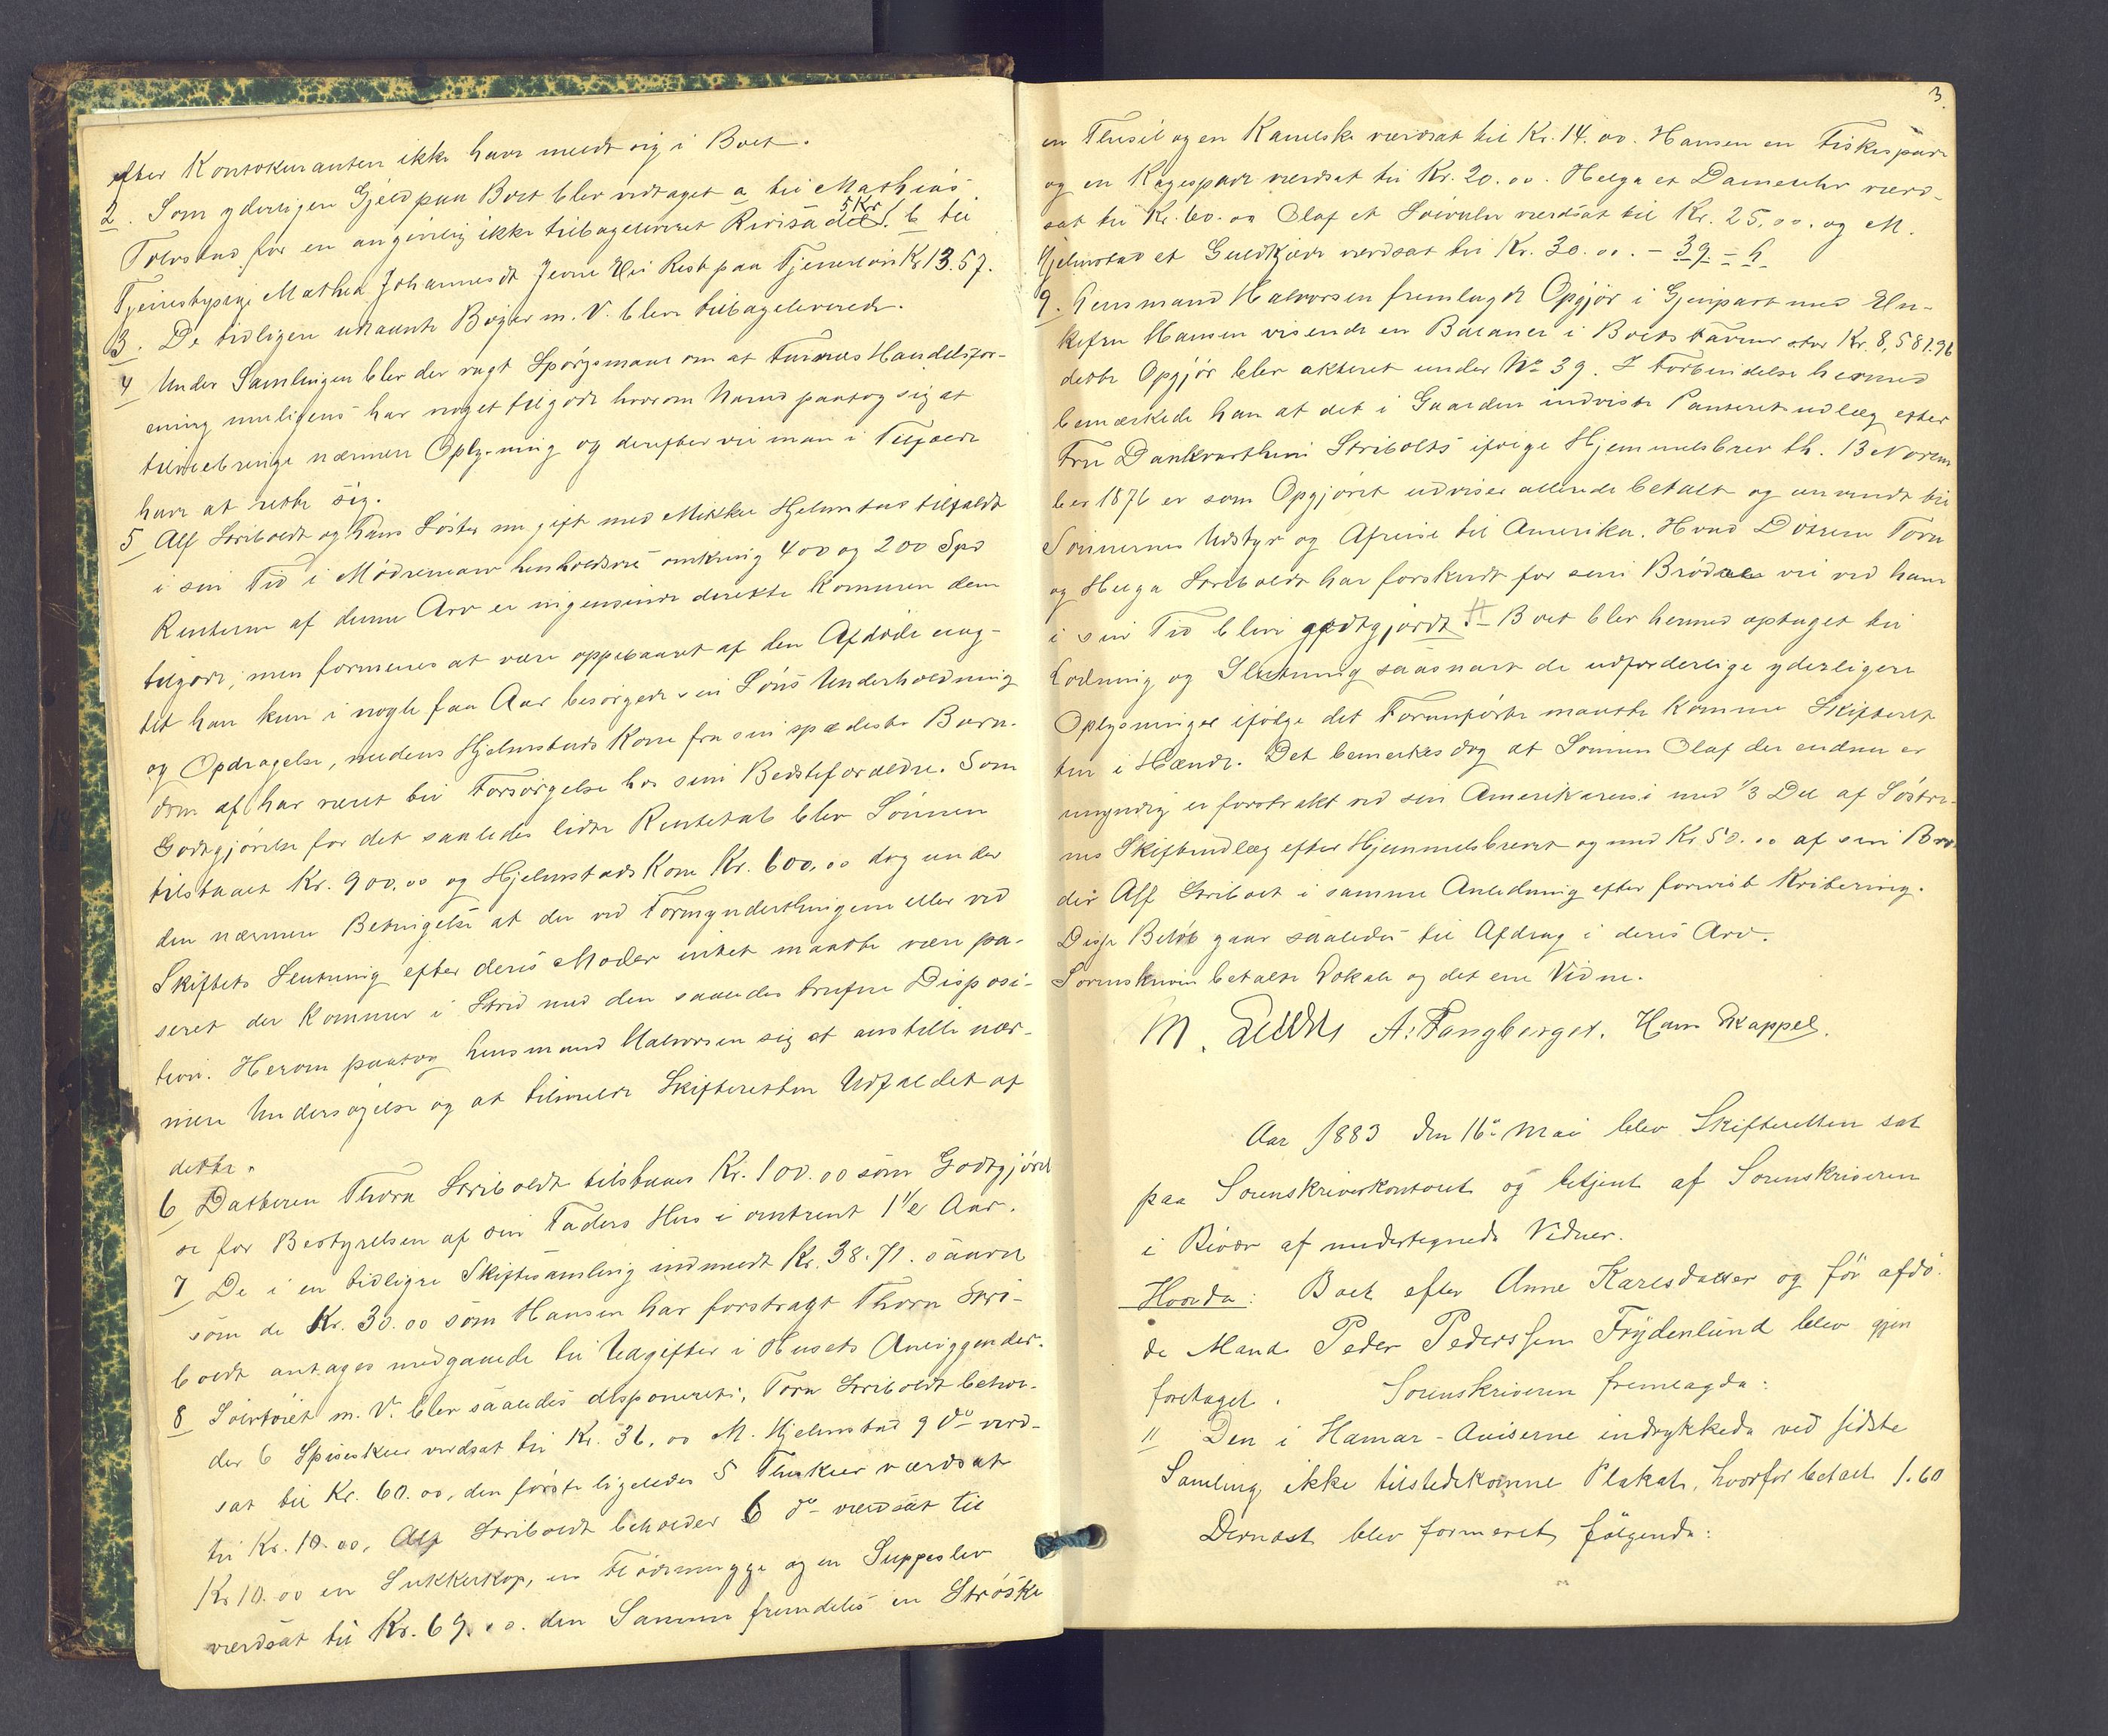 efter Kontokuranten ikke have meldt sig i Boet.
2. Som yderligere Gjeld paa Boet blev vedtaget a til Mathias
Tolvstad for en angivelig ikke tilbageleveret 5 Kr. b til
Tjenestepige Mathea Johannesdt Jevne Rest paa Tjenerløn Kr 13.57.
3. De tidligere udtaante Bøger m. V. blev tilbageleverede.
4 Under Samlingen blev der vagt Spørgsmaal om at Furnes Handelsfor-
ening muligens har noget tilgode hvorom Mand paatog sig at
tilveiebringe nærmere Oplysning og derefter vil man i Tilfælde
have at rette sig.
5 Alf Striboldt og hans Søster nu gift med Mikkel Hjelmstad tilfaldt
i sin Tid i Mødrenearv henholdsvis omkring 400 og 200 Spd
Renterne af denne Arv er ingensinde direkte kommen dem
tilgode, men formenes at være oppebaaret af den Afdøde uag-
tet han kun i nogle faa Aar besørgede sin Søns Underholdning
og Opdragelse, medens Hjelmstads Kone fra sin spædeste Barn-
dom af har været til Forsørgelse hos sine Bedsteforældre. Som
Godtgjørelse for det saaledes lidte Rentetab blev Sønnen
tilstaaet Kr. 900,00 og Hjelmstads Kone Kr. 600,00 dog under
den nærmere Betingelse at der ved Formynderthingene eller ved
Skiftets Slutning efter deres Moder intet maatte være pas-
seret der kommer i Strid med den saaledes trufne Disposi-
tion. Herom paatog Lensmand Halvorsen sig at anstille nær-
mere Undersøgelse og at tilmelde Skifteretten Udfaldet af
dette.
6 Datteren Thora Striboldt tilstaaes Kr. 100.00 som Godtgjørel
se for Bestyrelsen af sin Faders Hus i omtrent 1 1/2 Aar.
7 De i en tidligere Skiftesamling indmeldte Kr. 38.71. saavel
som de Kr. 30.00 som Hansen har forstragt Thora Stri-
boldt antages medgaaede til Udgifter i Husets Anliggender.
8 Sølvtøiet m. V. blev saaledes disponeret: Tora Striboldt behol-
der 6 Spiseskeer værdsat til Kr. 36.00 M. Hjelmstad 9 do værd-
sat til Kr. 60.00, den første ligeledes 5 Theskeer værdsat
til Kr. 10.00, Alf Striboldt beholder 6 do værdsat til
Kr 10.00 en Sukkerkop, en Flødemugge og en Suppeslev
værdsat til Kr. 69.00. den Samme fremdeles en Strøske
3.
en Thesil og en Kaneelske værdsat til Kr. 14.00. Hansen en Fiskespade
og en Kagespade værdsat til Kr. 20.00. Helga et Dameuhr værd-
sat til Kr. 60.00 Olaf et Sølvuhr værdsat til Kr. 25.00. og M.
Hjelmstad et Guldkjede værdsat til Kr. 30.00. – 39. – h
9. Lensmand Halvorsen fremlagde Opgjør i Gjenpart med En-
kefru Hansen visende en Balance i Boets Favør stor Kr. 8,581.96
dette Opgjør blev akteret under No 39. I Forbindelse hermed
bemærkede han at det i Gaarden indviste Panteretudlæg efter
Fru Dankvarthine Stribolts ifølge Hjemmelsbrev th. 13 Novem
ber 1876 er som Opgjøret udviser allerede betalt og anvendt til
Sønnernes Udstyr og Afreise til Amerika. Hvad Døtrene Tora
og Helga Striboldt har forskudt for sine Brødre vil ved ham
i sin Tid blive godtgjordt. – Boet blev hermed optaget til
Lodning og Slutning saasnart de udfordrelige yderligere
Oplysninger ifølge det Foranførte maatte komme Skifteret
ten i Hænde. Det bemerkes dog at Sønnen Olaf der endnu er
umyndig er forstrakt ved sin Amerikareise med 1/3 Del af Søstre-
nes Skifteudlæg efter Hjemmelsbrevet og med Kr. 50.00 af sin Bro-
der Alf Stribolt i samme Anledning efter forevist Kvitering.
Disse Beløb gaar saaledes til Afdrag i deres Arv.
Sorenskriveren betalte Lokale og det ene Vidne.
M. A. Fangberget. Hans Skappel.
Aar 1883 den 16de Mai blev Skifteretten sat
paa Sorenskriverkontoret og betjent af Sorenskriveren
i Bivær af undertegnede Vidner.
Hvorda: Boet efter Anne Karlsdatter og før afdø-
de Mand Peder Pedersen Frydenlund blev gjen
foretaget. Sorenskriveren fremlagde:
11 Den i Hamar-Aviserne indrykkede ved sidste
Samling ikke tilstedekomne Plakat, hvorfor betalt 1.60
Dernæst blev formeret følgende: